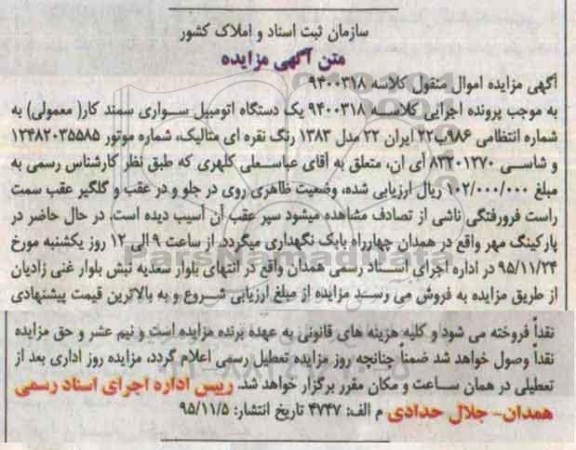 سازمان ثبت اسناد و املاک کشور
متن آگهی مزایده
آگهی مزایده اموال منقول کلاسه ۹۴۰۰۳۱۸
به موجب پرونده اجرایی کلاسه ۹۴۰۰۳۱۸ یک دستگاه اتومبیل سواری سمند کار( معمولی) به
شماره انتظامی ۹۸۶ب۲۲ ایران ۲۲ مدل ۱۳۸۳ رنگ نقره ای متالیک، شماره موتور ۱۲۴۸۲۰۳۵۵۸۵
و شاسی ۸۳۲۰۱۲۷۰ آی ان، متعلق به آقای عباسعلی کلهری که طبق نظر کارشناس رسمی به
مبلغ ۱۰۲/۰۰۰/۰۰۰ ریال ارزیابی شده، وضعیت ظاهری روی در جلو و در عقب و گلگیر عقب سمت
راست فرورفتگی ناشی از تصادف مشاهده میشود سپر عقب آن آسیب دیده است، در حال حاضر در
پارکینگ مهر واقع در همدان چهارراه بابک نگهداری میگردد، از ساعت ۹ الی ۱۲ روز یکشنبه مورخ
۹۵/۱۱/۲۴ در اداره اجرای اسناد رسمی همدان واقع در انتهای بلوار سعدیه نبش بلوار غنی زادیان
از طریق مزایده به فروش می رسد مزایده از مبلغ ارزیابی شروع و به بالاترین قیمت پیشنهادی
نقداً فروخته می شود و کلیه هزینه های قانونی به عهده برنده مزایده است و نیم عشر و حق مزایده
نقداً وصول خواهد شد ضمناً چنانچه روز مزایده تعطیل رسمی اعلام گردد، مزایده روز اداری بعد از
تعطیلی در همان ساعت و مکان مقرر برگزار خواهد شد. رییس اداره اجرای اسناد رسمی
همدان- جلال حدادی م الف: ۴۷۴۷ تاریخ انتشار: ۹۵/۱۱/۵
ParsNamadData